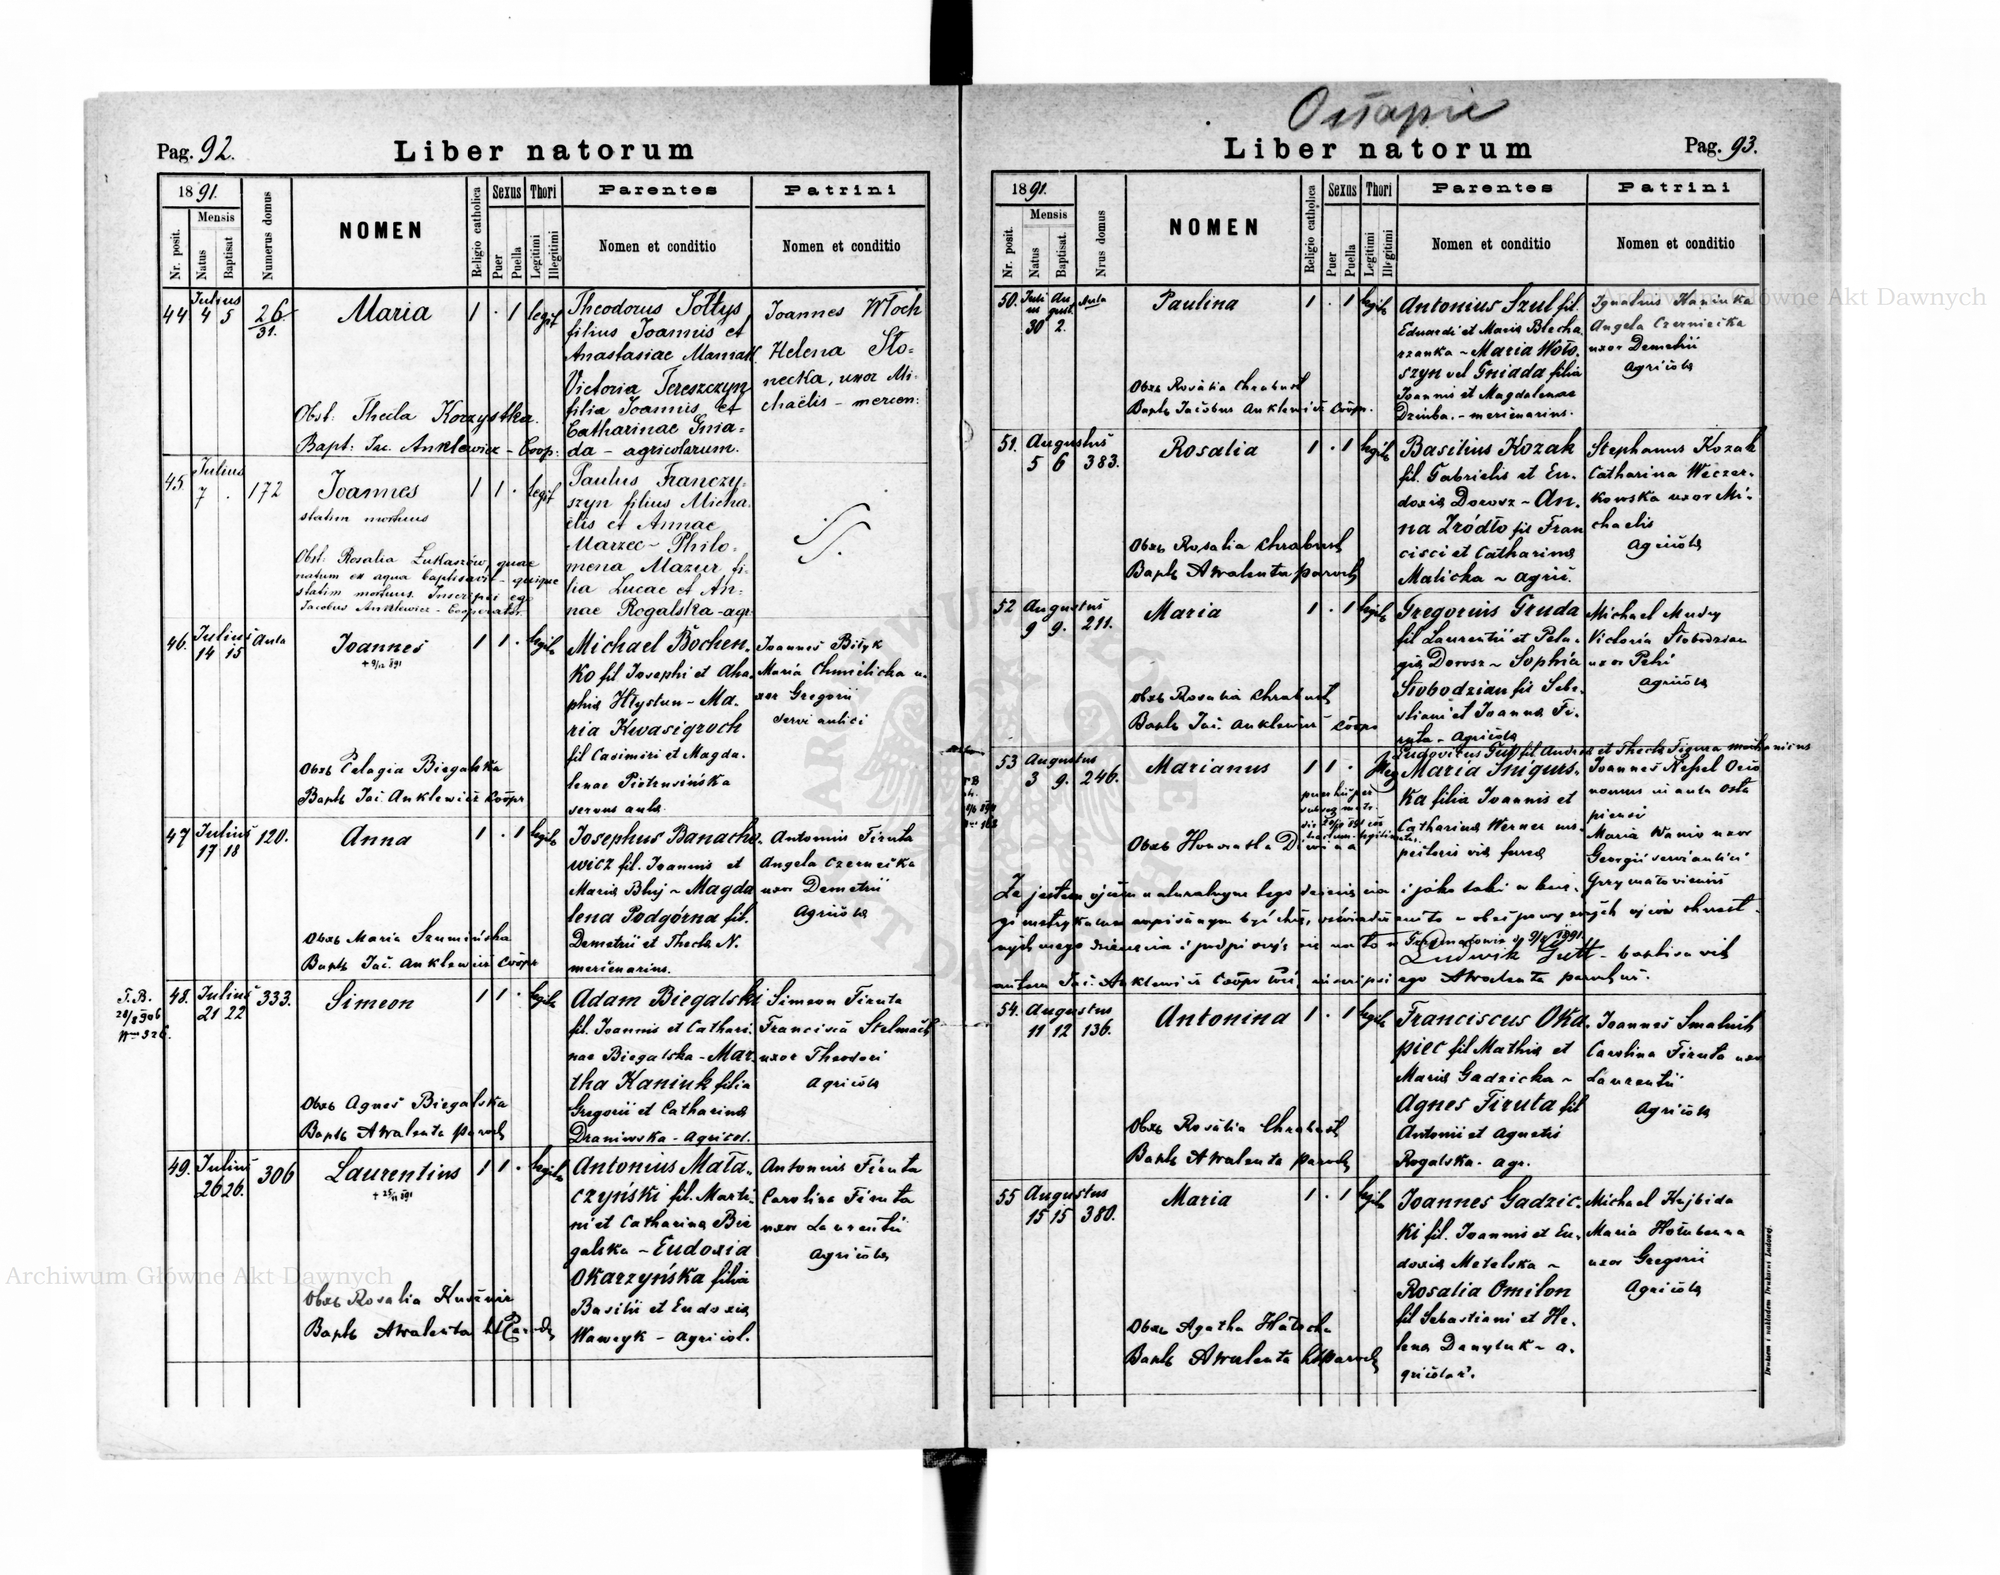 Ostapie
Pag. 92.
Liber natorum
1891.
Nr. posit.
Mensis
Natus
Baptisat
Numerus domus
NOMEN
Religio catholica
Sexus
Puer
Puella
Thori
Legitimi
Illegitimi
Parentes
Nomen et conditio
Patrini
Nomen et conditio
44
Julius
4 5
26/31.
Maria
1 . 1 legit
Obst: Thecla Korzystka.
Bapt: Jac. Anklewicz - Coop:
Theodorus Sołtys
filius Joannis et
Anastasiae Mamak
Victoria Tereszczyn
filia Joannis et
Catharinae Gnia=
da - agricolarum.
Joannes Włoch
Helena Sło=
necka, uxor Mi-
chaëlis - mercen:
45
Julius
7 .
172
Joannes
statim mortuus
1 1 . legit
Obst: Rosalia Łukaszów, quae
natum ex aqua baptisavit - quique
statim mortuus. Inscripsi ego
Jacobus Anklewicz - Cooperator.
Paulus Franczy-
szyn filius Micha-
ëlis et Annae
Marzec - Philo-
mena Mazur fi-
lia Lucae et An-
nae Rogalska - agr.
46.
Julius
14 15
Aula
Joannes
+ 9/12 891
1 1 . legit
Obst Pelagia Biegalska
Bapt Jac. Anklewicz Coopr
Michael Bochen-
ko fil Josephi et Aha-
phia Hłystun - Ma-
ria Kwasigroch
fil Casimiri et Magda-
lenae
servus aula
Joannes Bilyk
Maria Chmielicka u-
xor Gregorii
servi aulici
47
Julius
17 18
120.
Anna
1 . 1 legit
Obst Maria Szumińska
Bapt Jac. Anklewicz Coopr
Josephus Banacho-
wicz fil. Joannis et
Maria Bluj ~ Magda
lena Podgórna fil.
Demetrii et Thecla N.
mercenarius.
Antonius Firuta
Angela Czernećka
uxor Demetrii
Agricola
T.B.
28/8 906
Nro 326.
48.
Julius
21 22
333.
Simeon
1 1 . legit
Obst Agnes Biegalska
Bapt A Walenta paroch
Adam Biegalski
fil. Joannis et Cathari-
nae Biegalska - Mar-
tha Kaniuk filia
Gregorii et Catharina
Draniwska - agricol.
Simeon Firuta
Francisca Stelmach
uxor Theodori
Agricola
49.
Julius
26 26.
306
Laurentius
+ 25/11 891
1 1 . legit
Obst Rosalia Kusznir
Bapt A Walenta Paroch
Antonius Mała-
czyński fil. Marti-
ni et Catharina Bie
galska - Eudoxia
Okarzyńska filia
Basilii et Eudoxia
Wawryk - agricol.
Antonius Firuta
Carolina Firuta
uxor Laurentii
Agricola
Liber natorum
Pag. 93.
1891.
Nr. posit.
Mensis
Natus
Baptisat.
Nrus domus
NOMEN
Religio catholica
Sexus
Puer
Puella
Thori
Legitimi
Illegitimi
Parentes
Nomen et conditio
Patrini
Nomen et conditio
50.
Juli us
30
Au gust.
2.
Aula
Paulina
1 . 1 legit
Obst Rosalia Chrabust
Bapt Jacobus Anklewicz Coopr.
Antonius Szul fil.
Eduardi et Maria Blecha
rzanka ~ Maria Woło-
szyn vel Gniada filia
Joannis et Magdalenae
Dziuba. - mercenarius.
Ignatius Kaniuka
Angela Czerniecka
uxor Demetrii
Agricola
51.
Augustus
5 6
383.
Rosalia
1 . 1 legit
Obst Rosalia Chrabust
Bapt A Walenta paroch
Basilius Kozak
fil. Gabrielis et Eu-
doxia Dorosz ~ An-
na Źródło fil Fran
cisci et Catharina
Malicka ~ agric.
Stephanus Kozak
Catharina Wieczer-
kowska uxor Mi-
chaelis
Agricola
52
Augustus
9 9.
211.
Maria
1 . 1 legit
Obst Rosalia Chrabust
Bapt Jac. Anklewicz Coopr
Gregorius Gruda
fil Laurentii et Pela-
gia Dorosz ~ Sophia
Słobodzian fil Seba-
stiani et Joanna Fi-
ruta - Agricola
Michael Mudry
Victoria Słobodzian
uxor Petri
Agricola
53
Augustus
3 9.
246.
Marianus
1 1 .
Obst Honorata
Ludovicus Gutt fil Andrea et Thecla Figura mechanicus
Maria Śnigurs-
ka filia Joannis et
Catharina Werner ins-
pectoris via ferrea
Joannes Nepel Oeco
nomus in aula Osta
piensi
Maria Wanio uxor
Georgii servi aulici
Grzymałoviensis
Że jestem ojcem naturalnym tego dziecięcia i jako taki w księ-
gi metrykalne wpisanym być chcę,
Ludwik Gutt - baptisavit
autem Jac. Anklewicz Coopr inscripsi ego A Walenta parochus.
54.
Augustus
11 12
136.
Antonina
1 . 1 legit
Obst Rosalia Chrabust
Bapt A Walenta paroch
Franciscus Oka-
piec fil Mathia et
Maria Gadzicka ~
Agnes Firuta fil
Antonii et Agnetis
Rogalska. agr.
Joannes Smaluch
Carolina Firuta uxor
Laurentii
Agricola
55
Augustus
15 15
380.
Maria
1 . 1 legit
Obst Agatha
Bapt A Walenta paroch
Joannes Gadzic-
ki fil. Joannis et Eu-
doxia Metelska ~
Rosalia Omilon
fil Sebastiani et He-
lena Danyluk ~ a-
gricolar.
Michael Hajbida
Maria Hołubenna
uxor Gregorii
Agricola
Drukiem i nakładem Drukarni Ludowej.
Archiwum Główne Akt Dawnych
Archiwum Główne Akt Dawnych